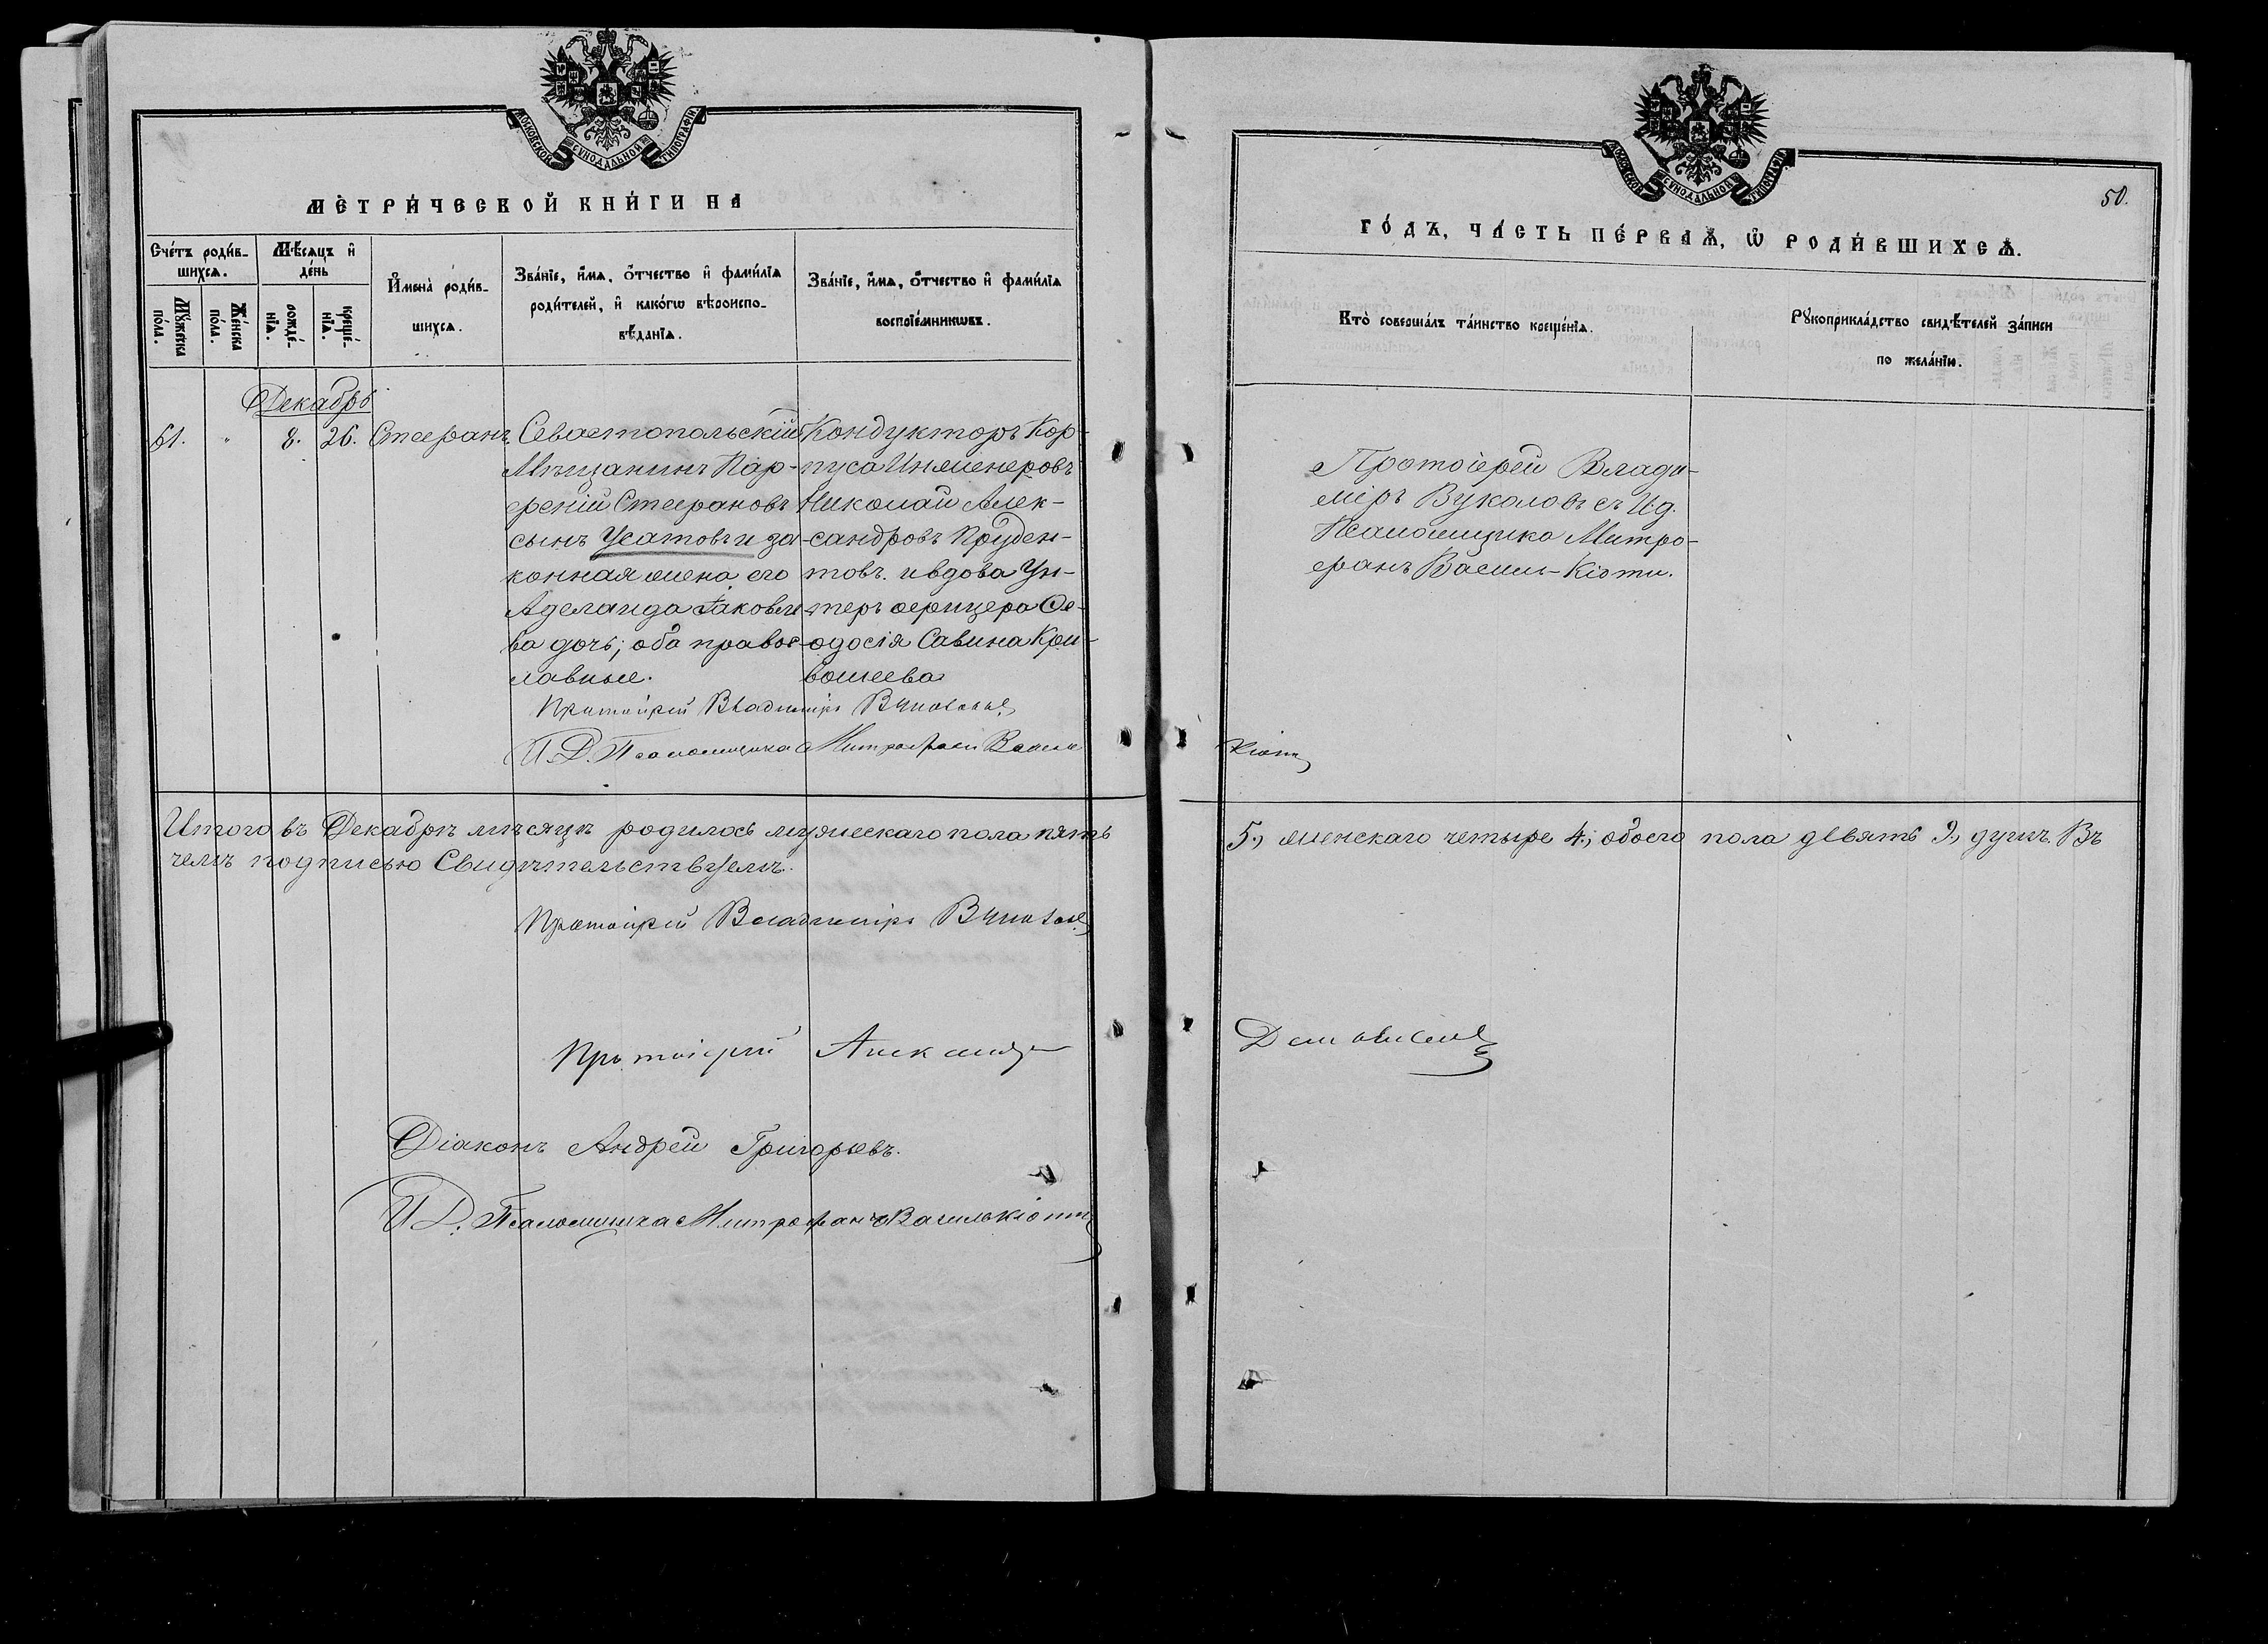 МОСКОВСКОЙ СѴНОДАЛЬНОЙ ТИПОГРАФІИ
МЕТРИ́ЧЕСКОЙ КНИ́ГИ НА
Сче́тъ роди́в-
шихсѧ.
Мꙋ́жеска по́ла.
Же́нска по́ла.
Мѣ́сѧцъ и҆ де́нь
рожде́-нїѧ.
креще́-нїѧ.
И҆мена̀ роди́в-
шихсѧ.
Зва́нїе, и҆́мѧ, ѻ҆́тчество и҆ фами́лїѧ
роди́телей, и҆ како́гѡ вѣроиспо-
вѣ́данїѧ.
Зва́нїе, и҆́мѧ, ѻ҆́тчество и҆ фами́лїѧ
воспрїе́мникѡвъ.
Декабрь
61. " 8. 26. Стефанъ
Севастопольскій
Мѣщанинъ Пар-
феній Стефановъ
сынъ Усатовъ и за-
конная жена его
Аделаида Іаковле-
ва дочь; оба правос-
лавные.
Кондукторъ Кор-
пуса Инженеровъ
Николай Алек-
сандровъ Пруден-
товъ. и вдова Ун-
теръ офицера Фе-
одосія Савина Кри-
вошеева
Протоіерей Владиміръ Вуколовъ
И. Д. Псаломщика Митрофанъ Василь
Итого въ Декабрѣ мѣсяцѣ родилось мужескаго пола пять
чемъ подписью Свидѣтельствуемъ.
Протоіерей Владиміръ Вуколовъ
Протоіерей Александръ
Діаконъ Андрей Григорьевъ.
И. Д. Псаломщика Митрофанъ Василькіоти
МОСКОВСКОЙ СѴНОДАЛЬНОЙ ТИПОГРАФІИ
50.
ГО́ДЪ, ЧА́СТЬ ПЕ́РВАѦ, Ѡ҆ РОДИ́ВШИХСѦ.
Кто̀ соверша́лъ та́инство креще́нїѧ.
Рꙋкоприкла́дство свидѣ́телей за́писи
по жела́нїю.
Протоіерей Влади-
міръ Вуколовъ съ И. д.
Псаломщика Митро-
фанъ Васили-Кіоти.
Кіоти
5., женскаго четыре 4.; обоего пола девять 9., душъ. Въ